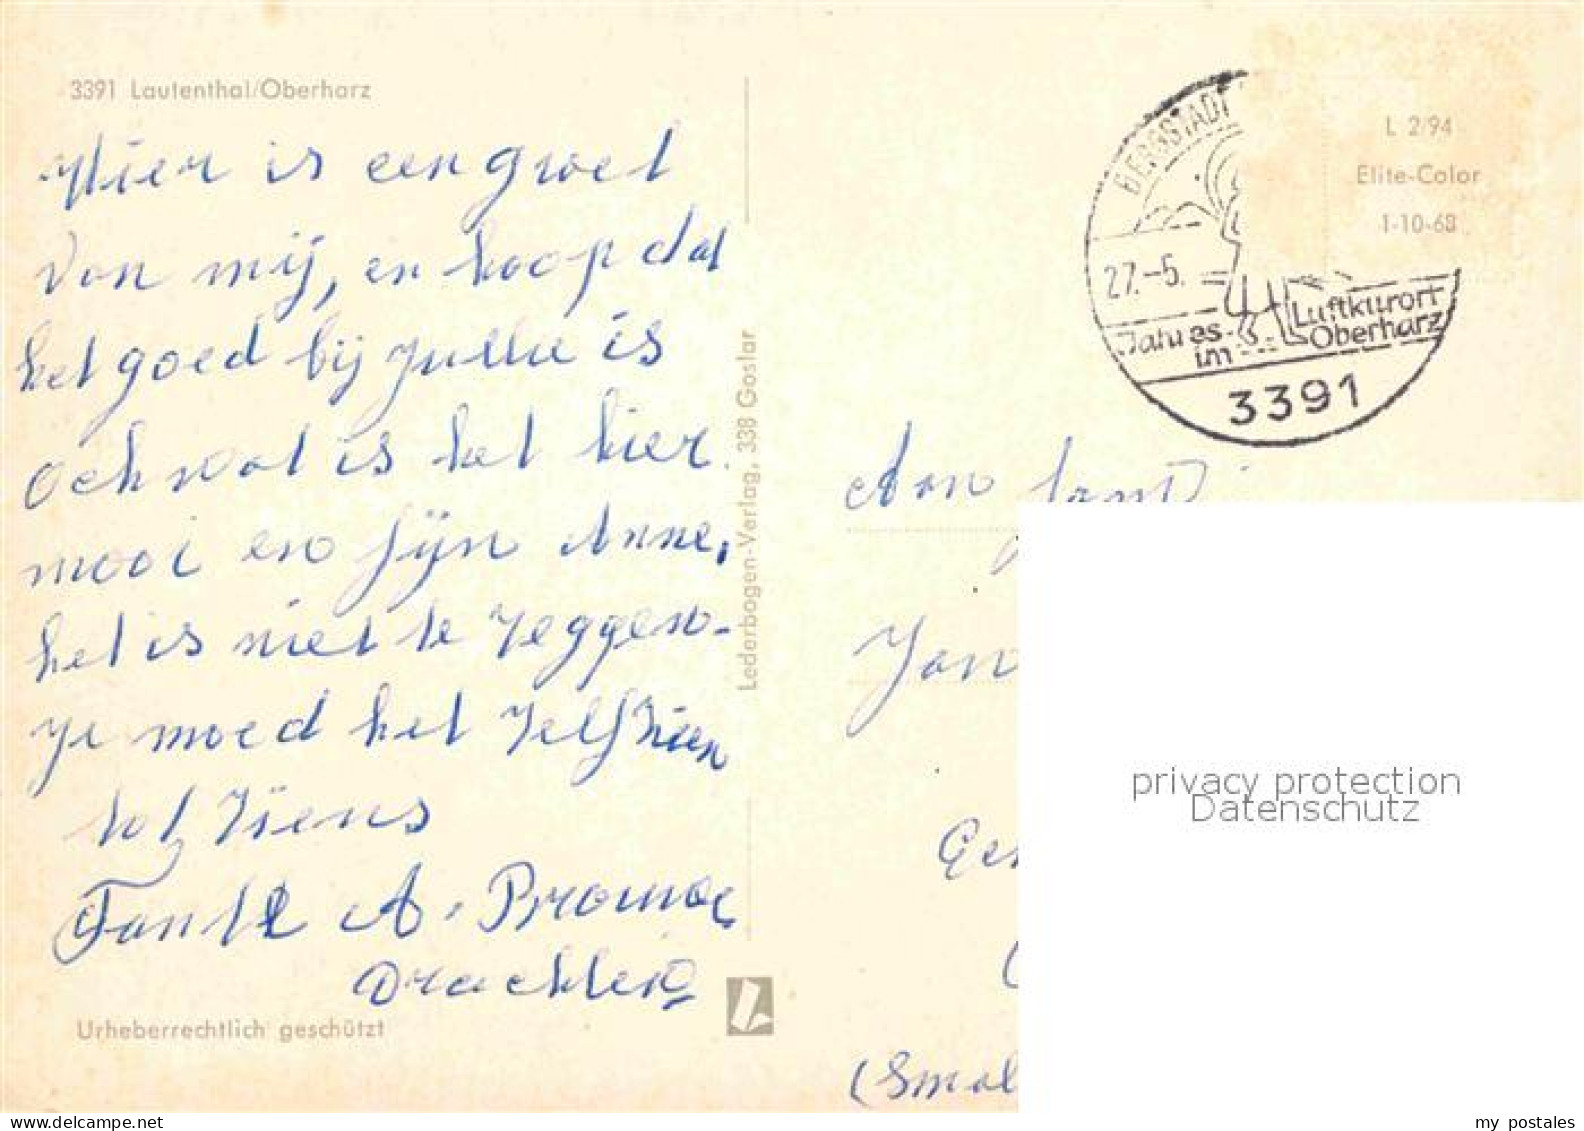 3391 Lautenthal/Oberharz
Hier is een groet
Van mij, en hoop dat
het goed bij jullie is
Och wat is het hier
mooi en fijn Anne,
het is niet te zeggen-
je moed het zelf zien
tot ziens
Tante A.
Urheberrechtlich geschützt
Lederbogen-Verlag, 338 Goslar
BERGSTADT
27.-5.
Jahres-
im
Luftkurort
Oberharz
3391
L 2/94
Elite-Color
1-10-68
Aan
Jan
privacy protection
Datenschutz
www.delcampe.net
my postales